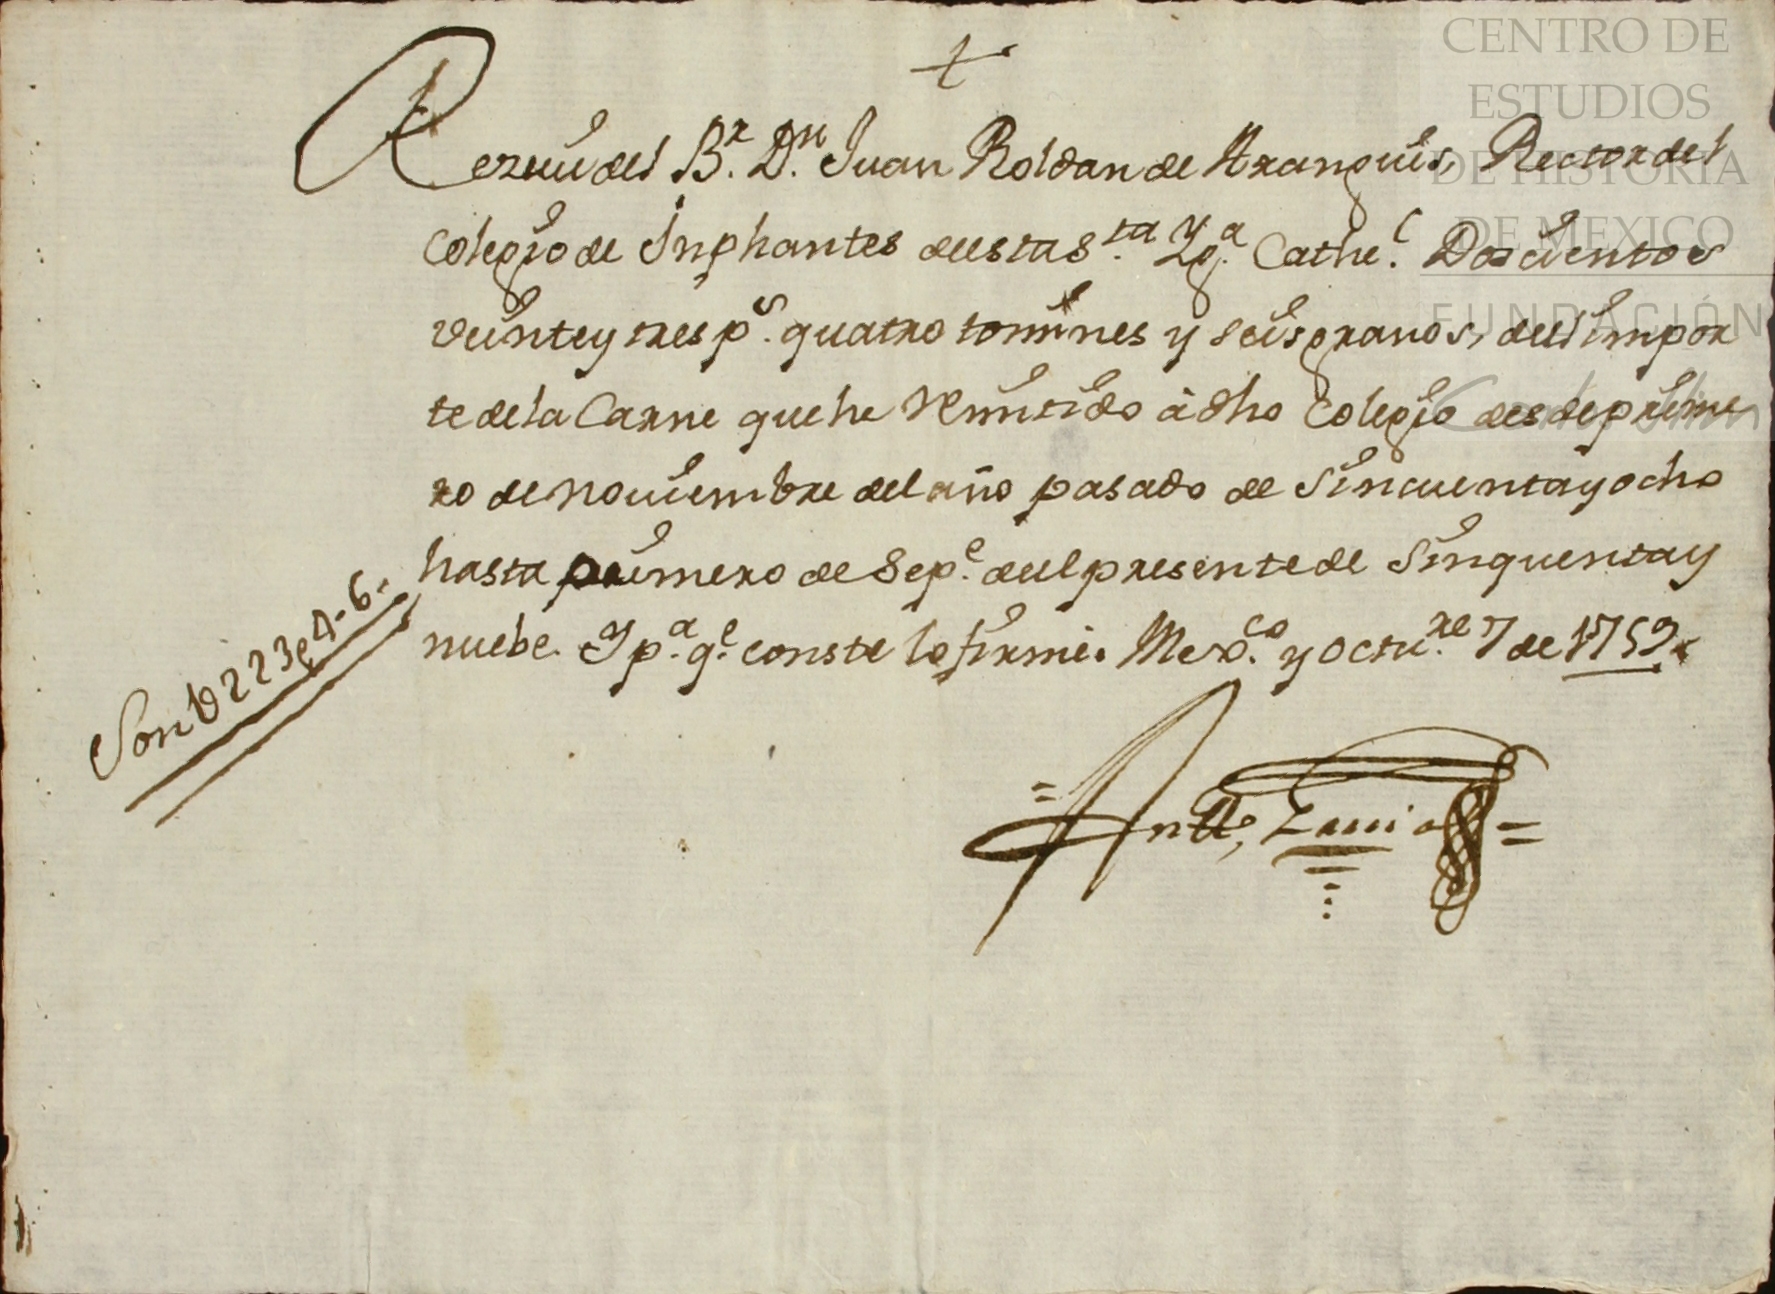 +
CENTRO DE
ESTUDIOS
DE HISTORIA
DE MEXICO
FUNDACIÓN
Rezeui del B.r D.n Juan Roldan de Aranguis, Rector del
Colegio de Inphantes de esta S.ta Yg.a Cathe.l Doscientos
veinte y tres p.s quatro tomines y seis granos, del impor
te de la Carne que he Remitido â dho Colegio desde prime
ro de Noviembre del año pasado de Sincuenta y ocho
hasta primero de Sep.e del presente de Sinquenta y
nuebe. Y p.a q.e conste lo firmè. Mex.co y Octu.re 7 de 1759.
Son 223 p.s 4-6.
Antt.o